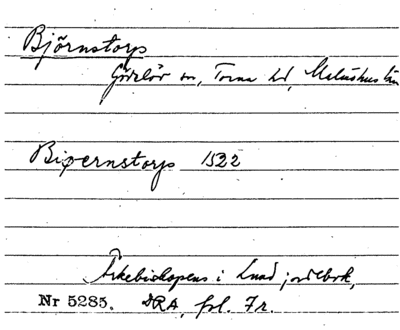 Björnstorp
Gödelöv sn, Torna hd, Malmöhus län
Biøernstorp 1522
Ärkebiskopens i Lund jordebok,
Nr 5285. DRA, fol. 7r.